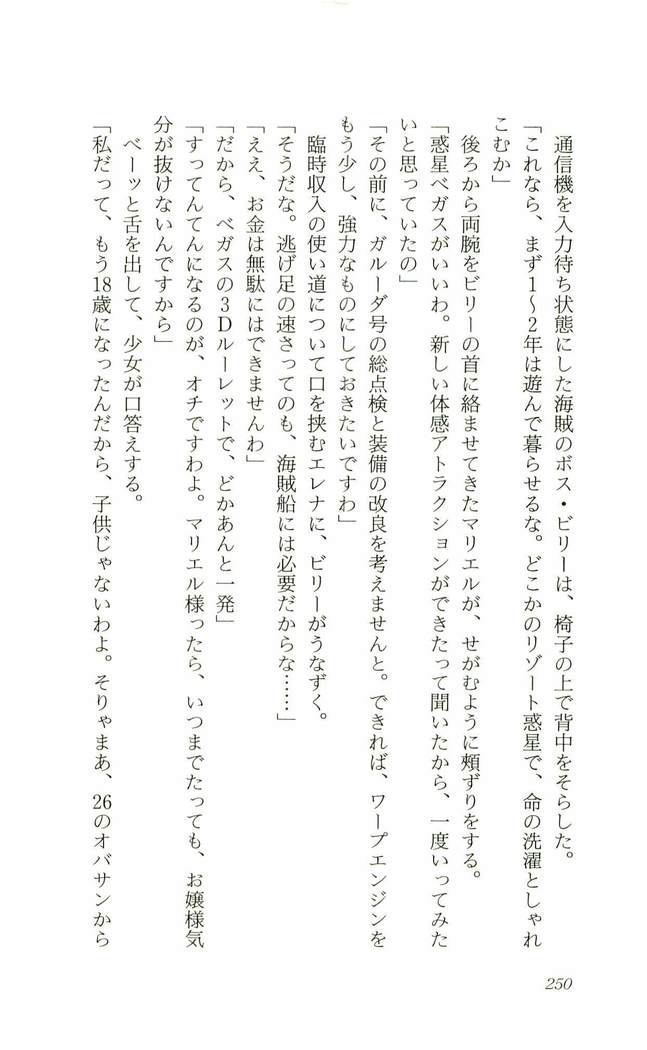 通信機を入力待ち状態にした海賊のボス・ビリーは、椅子の上で背中をそらした。
「これなら、まず１～２年は遊んで暮らせるな。どこかのリゾート惑星で、命の洗濯としゃれ
こむか」
後ろから両腕をビリーの首に絡ませてきたマリエルが、せがむように頰ずりをする。
「惑星ベガスがいいわ。新しい体感アトラクションができたって聞いたから、一度いってみた
いと思っていたの」
「その前に、ガルーダ号の総点検と装備の改良を考えませんと。できれば、ワープエンジンを
もう少し、強力なものにしておきたいですわ」
臨時収入の使い道について口を挟むエレナに、ビリーがうなずく。
「そうだな。逃げ足の速さってのも、海賊船には必要だからな……」
「ええ、お金は無駄にはできませんわ」
「だから、ベガスの３Ｄルーレットで、どかあんと一発」
「すってんてんになるのが、オチですわよ。マリエル様ったら、いつまでたっても、お嬢様気
分が抜けないんですから」
ベーッと舌を出して、少女が口答えする。
「私だって、もう18歳になったんだから、子供じゃないわよ。そりゃまあ、26のオバサンから
250